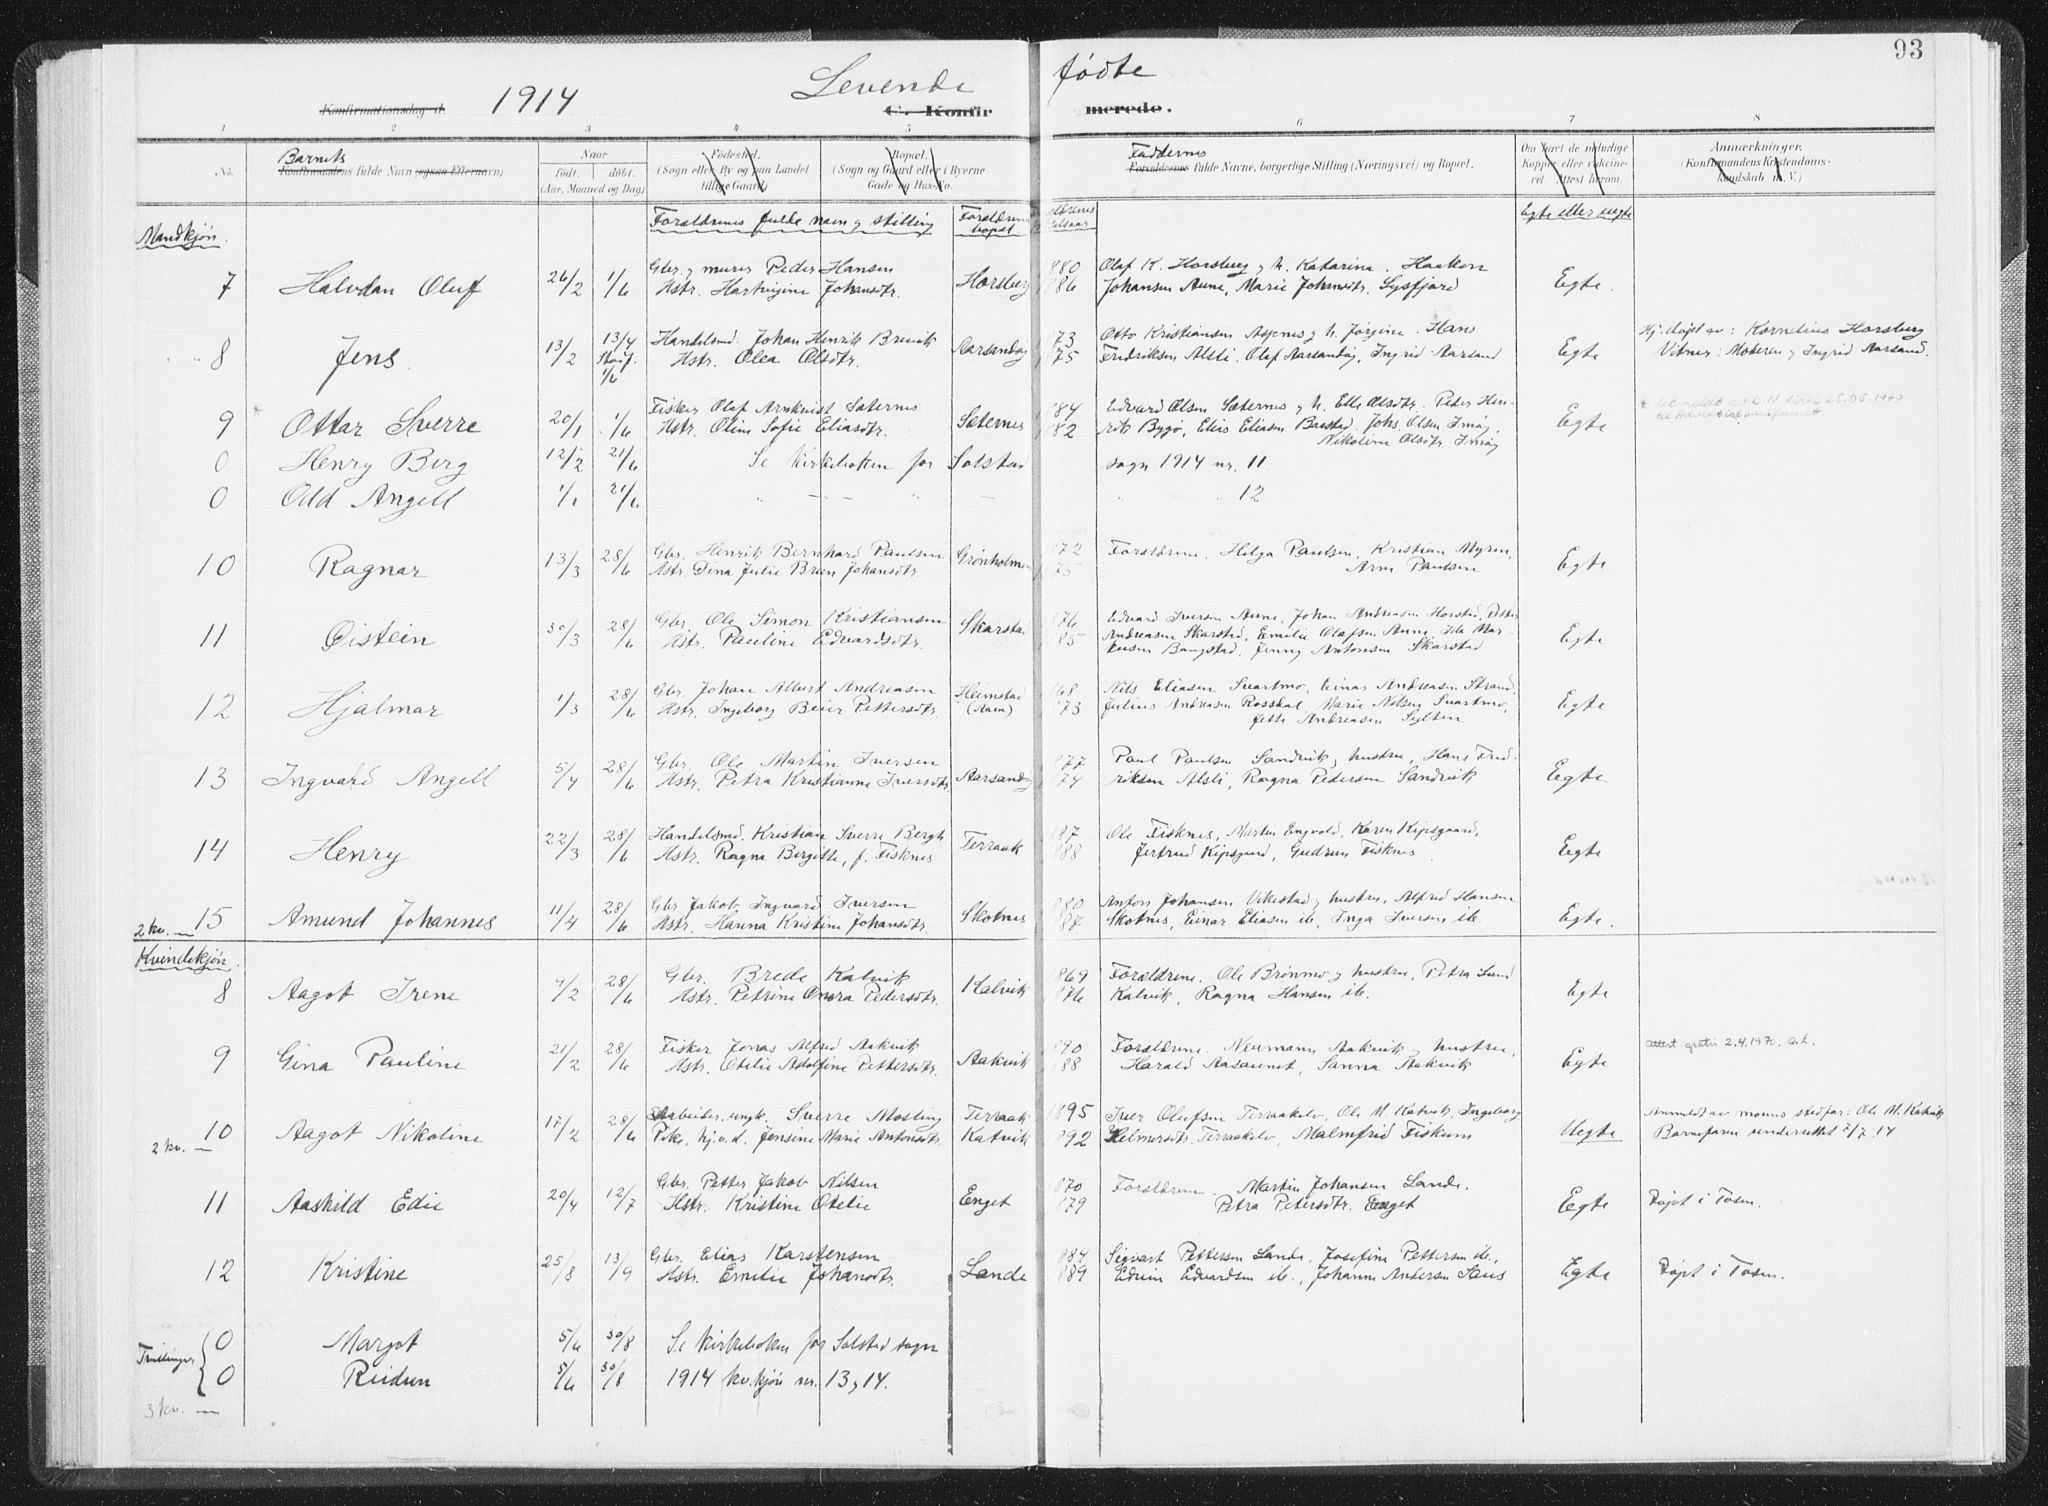 93
1914 Levende fødte
Konfirmationsdag d. C. Konfirmerede.
1 2 3 4 5 6 7 8
No.
Barnets
Konfirmandens fulde Navn (ogsaa Efternavn)
Naar
født. døbt.
(Aar, Maaned og Dag)
Fødested.
(Sogn eller By og paa Landet
tillige Gaard)
Bopæl.
(Sogn og Gaard eller i Byerne
Gade og Hus-No.
Faddernes
Forældrenes fulde Navne, borgerlige Stilling (Næringsvei) og Bopæl.
Om havt de naturlige
Kopper eller vakcine-
ret. Attest herom.
Anmærkninger.
(Konfirmandens Kristendoms-
kundskab m. V.)
Mandkjøn.
Forældrenes fulde navn og stilling
Forældrenes bopæl
Egte eller uegte
7 Halvdan Oluf 26/2 1/6 Gbr. og murer Peder Hansen Horsberg 880 Olaf K. Horsberg og h. Katarina. Haakon
Hstr. Hartvigine Johansdtr. 886 Johansen Aune, Marie Johansdtr. Sysfjord Egte.
8 Jens 13/2 13/4 1/6 Handelsmd. Johan Henrik Brevik Aarsandøy 73 Otto Kristiansen Aspenes og h. Jørgine. Hans Hj. døpt av: Kornelius Horsberg
Hstr. Olea Olsdtr. 75 Fredriksen Alsli. Olaf Aarsandøy, Ingrid Aarsand Egte Vitner: Moderen og Ingrid Aarsand.
9 Ottar Sverre 20/1 1/6 Fisker Olaf Arnkvist Sæternes Sæternes 884 Edvard Olsen Sæternes og h. Elle Olsdtr. Peter Hen-
Hstr. Oline Sofie Eliasdtr. 882 rik Bygø, Elias Eliasen Bustad. Johs. Olsen Imøy, Egte
Nikoline Olsdtr. Imøy
0 Henry Berg 12/2 21/6 Se kirkeboken for Solstad sogn 1914 nr. 11.
0 Odd Angell 1/1 21/6 " — — " " " 12
10 Ragnar 13/3 28/6 Gbr. Henrik Bernhard Paulsen Grønholmen 872 Forældrene. Helga Paulsen, Kristian Myren,
Hstr. Tina Julie Bruun Johansdtr. 75 Arne Paulsen Egte
11 Øistein 30/3 28/6 Gbr. Ole Simon Kristiansen Skarstad 876 Edvard Iversen Aune, Johan Andreasen Horstad, Petter
Hstr. Pauline Edvardsdtr. 885 Andreasen Skarstad, Emilie Olafsen Aune, Ida Mar- Egte
kusen Bangstad, Jenny Antonsen Skarstad
12 Hjalmar 1/3 28/6 Gbr. Johan Albert Andreasen Heimstad 868 Nils Eliasen Svartmo, Einar Andreasen Strand,
Hstr. Ingeborg Beier Pettersdtr. (Aaen) 873 Julius Andreasen Rosskal, Marie Nilsen Svartmo, Egte
Jette Andreasen Sylten
13 Ingvard Angell 5/4 28/6 Gbr. Ole Martin Iversen Aarsandøy 877 Paul Paulsen Sandvik og hustru, Hans Fred-
Hstr. Petra Kristianne Iversdtr. 874 riksen Alsli, Ragna Pedersen Sandvik Egte
14 Henry 22/3 28/6 Handelsmd. Kristian Sverre Bergh Terraak 887 Ole Fisknes, Martin Engvold, Karen Kipsgaard,
Hstr. Ragna Bergitte, f. Fisknes 888 Jertrud Kipsgaard, Gudrun Fisknes. Egte
2 kv. — 15 Amund Johannes 11/4 28/6 Gbr. Jakob Ingvard Iversen Skotnes 880 Anton Johansen Vikestad og hustru, Alfred Hansen
Hstr. Hanna Kristine Johansdtr. 887 Skotnes, Einar Eliasen ib., Inga Iversen ib. Egte.
Kvindekjøn.
8 Aagot Irene 9/2 28/6 Gbr. Brede Kalvik Kalvik 869 Forældrene, Ole Brønmo og hustru, Petra Lund
Hstr. Petrine Onora Pedersdtr. 876 Kalvik, Ragna Hansen ib. Egte
9 Gina Pauline 21/2 28/6 Fisker Jonas Alfred Aakvik Aakvik 890 Forældrene. Neumann Aakvik og hustru, Attest gratis 2.4.1970.
Hstr. Otelie Adolfine Pettersdtr. 888 Harald Aasaunet, Sanna Aakvik Egte
10 Aagot Nikoline 17/2 28/6 Arbeider, ungk. Sverre Mosling Terraak 1895 Iver Olufsen Terraakelv, Ole M. Kalvik, Ingeborg Anmeldt av morens stedfar: Ole M. Kalvik
2 kv. — Pike, hj.v.d. Jensine Marie Antonsdtr. Kalvik 892 Hilmersdtr. Terraakelv, Malmfrid Fiskum Uegte Barnefaren underrettet 2/7 14.
11 Aashild Edie 20/4 12/7 Gbr. Petter Jakob Nilsen Enget 870 Forældrene. Martin Johansen Lande.
Hstr. Kristine Otelie 879 Petra Petersdtr. Enget Egte Døpt i Tosen.
12 Kristine 25/8 13/9 Gbr. Elias Karstensen Lande 884 Sigvart Pettersen Lande, Josefine Pettersen ib.,
Hstr. Emilie Johansdtr. 889 Edvin Edvardsen ib., Johanne Andersen Saus Egte Døpt i Tosen.
Tvillinger
0 Margot 5/6 30/8 Se kirkeboken for Solstad sogn
0 Reidun 5/6 30/8 1914 kv.kjøn nr. 13 og 14.
3 kv. —